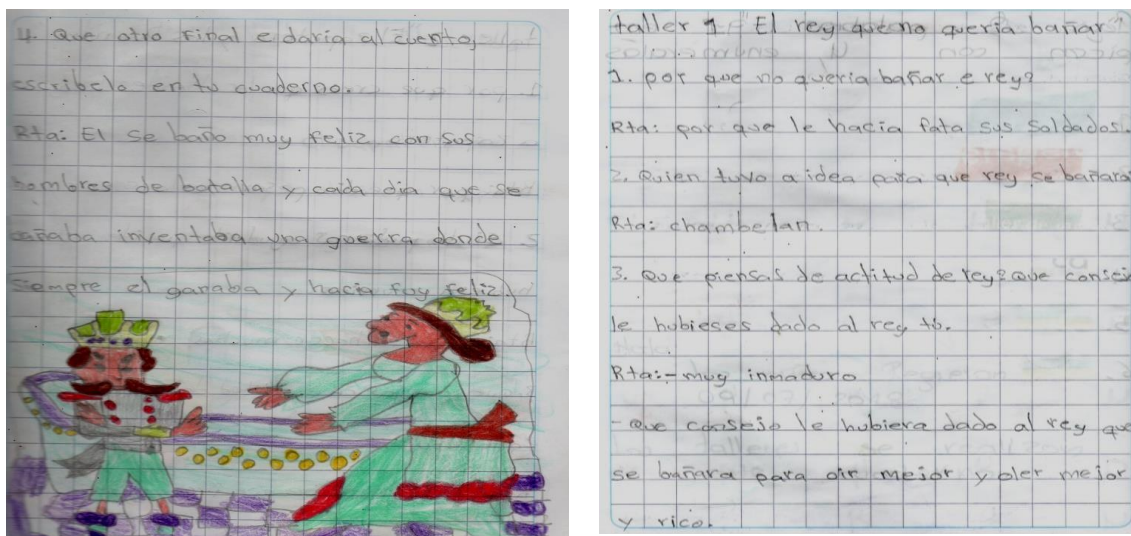 4. Que otro Final e daria al cuento,
escribelo en tu cuaderno.
Rta: El se baño muy feliz con sus
hombres de batalla y cada dia que se
bañaba inventaba una guerra donde
Sempre el ganaba y hacia fuy feliz.
taller 1 El rey que no queria bañar
1. por que no queria bañar e rey?
Rta: por que le hacia fata sus Soldados.
2. Quien tuvo a idea para que rey se bañara
Rta: chambelan.
3. Que piensas de actitud de rey? que consej
le hubieses dado al rey tu.
Rta: - muy inmaduro
- que consejo le hubiera dado al rey que
se bañara para oir mejor y oler mejor
y rico.